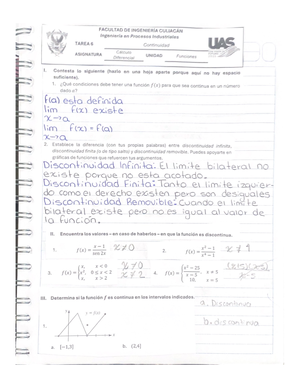 FACULTAD DE INGENIERÍA CULIACÁN
Ingeniería en Procesos Industriales
TAREA 6
Continuidad
ASIGNATURA
Cálculo Diferencial
UNIDAD
Funciones
UAS
I. Contesta lo siguiente (hazlo en una hoja aparte porque aquí no hay espacio suficiente).
1. ¿Qué condiciones debe tener una función f(x) para que sea continua en un número dado a?
f(a) esta definida
lim f(x) existe
x→a
lim f(x) = f(a)
x→a
2. Establece la diferencia (con tus propias palabras) entre discontinuidad infinita,
discontinuidad finita (o de tipo salto) y discontinuidad removible. Puedes apoyarte en
gráficas de funciones que refuercen tus argumentos.
Discontinuidad Infinita: El límite bilateral no
existe porque no esta acotado.
Discontinuidad Finita: Tanto el limite izquier-
do como el derecho existen pero son desiguales
Discontinuidad Removible: Cuando el limite
bilateral existe pero no es igual al valor de
la función.
II. Encuentra los valores – en caso de haberlos – en que la función es discontinua.
1.
x≠0
2.
x≠1
3.
x≠0
x≠2
4.
III. Determina si la función f es continua en los intervalos indicados.
a. Discontinua
1.
b. discontinua
a. [-1,3]
b. (2,4]